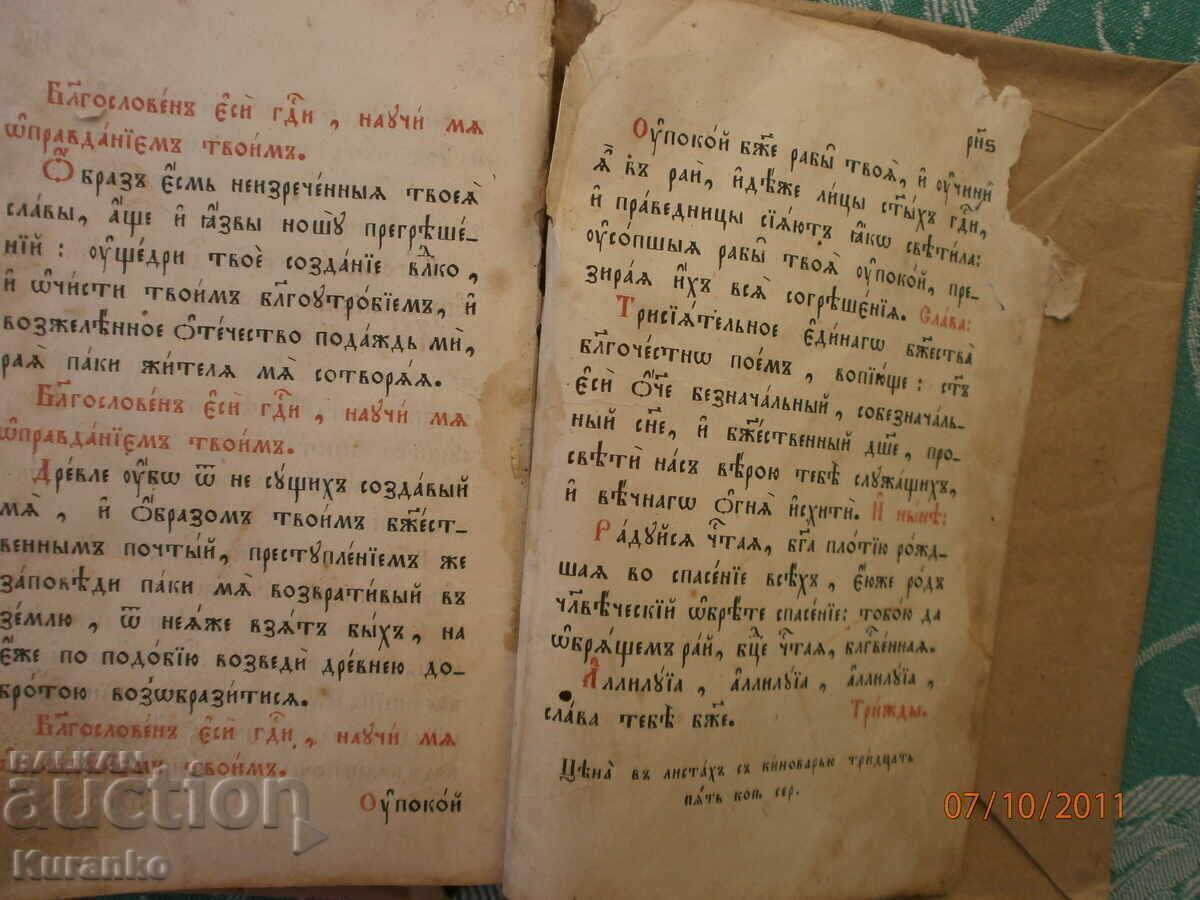 Бл҃гослове́нъ є҆сѝ гдⷭ҇и, наꙋчи́ мѧ
ѡ҆правда́нїємъ твои̑мъ.
Ѻ҆́бразъ є҆́смь неизрече́нныѧ твоеѧ̀
сла́вы, а҆́ще и҆ ꙗ҆́звы ношꙋ̀ прегрѣше́-
нїй: оу҆ще́дри твоѐ созда́нїе влⷣко,
и҆ ѡ҆чи́сти твои́мъ бл҃гоꙋтро́бїемъ, и҆
возжелѣ́нное ѻ҆те́чество пода́ждь мѝ,
раѧ̀ па́ки жи́телѧ мѧ̀ сотворѧ́ѧ.
Бл҃гослове́нъ є҆сѝ гдⷭ҇и, наꙋчи́ мѧ
ѡ҆правда́нїємъ твои̑мъ.
Дре́вле оу҆́бѡ ѿ не сꙋ́щихъ созда́вый
мѧ̀, и҆ ѻ҆́бразомъ твои́мъ бж҃е́ст-
веннымъ почты́й, престꙋпле́нїемъ же
за́повѣди па́ки мѧ̀ возврати́вый въ
зе́млю, ѿ неѧ́же взѧ́тъ бы́хъ, на
є҆́же по подо́бїю возведѝ дре́внею до-
бро́тою возѡбрази́тисѧ.
Бл҃гослове́нъ є҆сѝ гдⷭ҇и, наꙋчи́ мѧ
твои̑мъ.
Оу҆поко́й
рн҃ѕ
Оу҆поко́й бж҃е рабы̑ твоѧ̑, и҆ оу҆чинѝ
ѧ҆̀ въ рай, и҆дѣ́же ли́цы ст҃ы́хъ гдⷭ҇и,
и҆ пра́ведницы сїѧ́ютъ ꙗ҆́кѡ свѣти́ла:
оу҆со́пшыѧ рабы̑ твоѧ̑ оу҆поко́й, пре-
зира́ѧ и҆́хъ всѧ̑ согрѣшє́нїѧ. Сла́ва:
Трисїѧ́тельное є҆ди́нагѡ бж҃ества̀
бл҃гоче́стнѡ пое́мъ, вопїю́ще: ст҃ъ
є҆сѝ ѻ҆́ч҃е безнача́льный, собезнача́ль-
ный сн҃е, и҆ бж҃е́ственный дш҃е, про-
свѣтѝ на́съ вѣ́рою тебѣ̀ слꙋ́жащихъ,
и҆ вѣ́чнагѡ ѻ҆гнѧ̀ и҆схитѝ. И҆ ны́нѣ:
Ра́дꙋйсѧ чⷭ҇таѧ, бг҃а пло́тїю ро́жд-
шаѧ во спасе́нїе всѣ́хъ, є҆́юже ро́дъ
чл҃вѣ́ческїй ѡ҆брѣ́те спасе́нїе: тобо́ю да
ѡ҆брѧ́щемъ ра́й, бцⷣе чⷭ҇таѧ, блгⷭ҇ве́ннаѧ.
А҆ллилꙋ́їа, а҆ллилꙋ́їа, а҆ллилꙋ́їа,
сла́ва тебѣ̀ бж҃е. Три́жды.
Цѣна̀ въ листа́хъ съ киноварью три́дцать
пѧ́ть коп. сер.
BALKAN
auction
Kuranko
07/10/2011